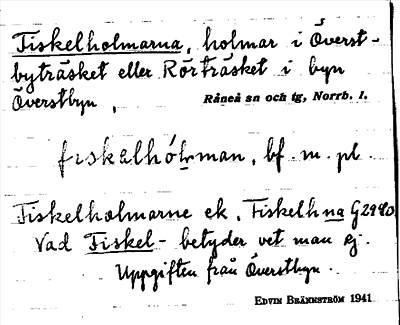 Fiskelholmarna, holmar i Överst-
byträsket eller Rörträsket i byn
Överstbyn,
Råneå sn och tg, Norrb. l.
fɩskəlhólman, bf. m. pl.
Fiskelholmarne ek. Fiskelhna G2980.
Vad Fiskel- betyder vet man ej.
Uppgiften från Överstbyn.
EDVIN BRÄNNSTRÖM 1941